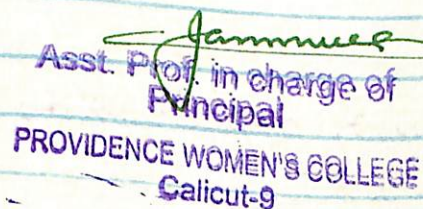 Asst. Prof. in charge of
Principal
PROVIDENCE WOMEN'S COLLEGE
Calicut-9